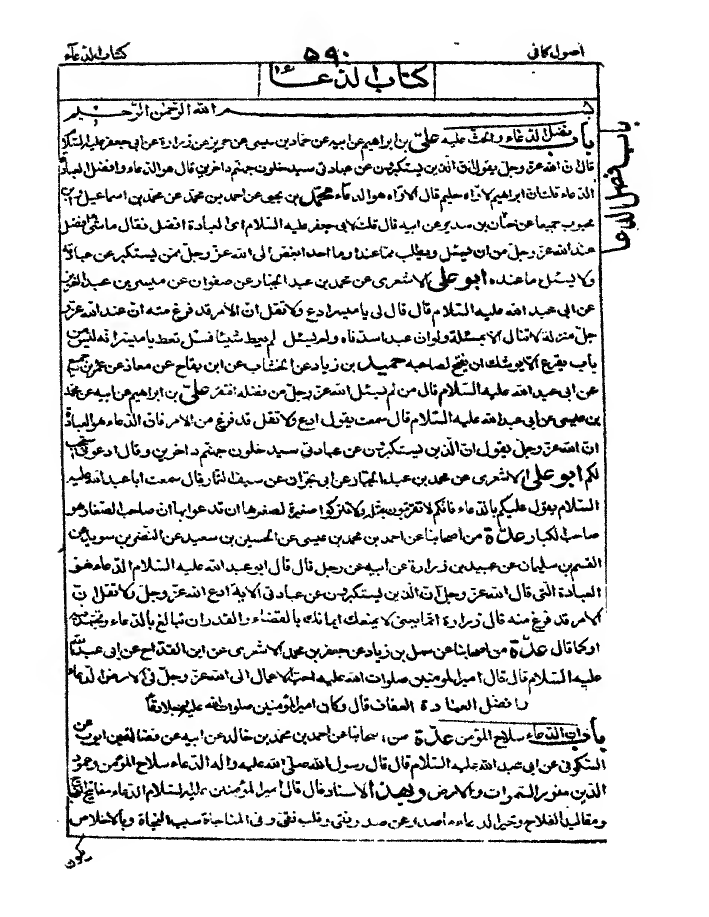 اصول كافى ۵۹۰ كتاب الدعآء
كتاب الدعاء
بسم الله الرحمن الرحيم
باب فضل الدعاء والحث عليه علىّ بن ابراهيم عن ابيه عن حماد بن عيسى عن حريز عن زرارة عن ابى جعفر عليه السلام
قال ان الله عزّ وجلّ يقول ان الذين يستكبرون عن عبادتى سيدخلون جهنم داخرين قال هو الدعاء وافضل العبادة
الدعاء قلت ان ابراهيم لاوّاه حليم قال الاوّاه هو الدعاء محمد بن يحيى عن احمد بن محمد عن محمد بن اسماعيل وابن
محبوب جميعا عن حنان بن سدير عن ابيه قال قلت لابى جعفر عليه السلام اى العبادة افضل فقال ما شئ افضل
عند الله عزّ وجلّ من ان يسئل ويطلب مما عنده وما احد ابغض الى الله عزّ وجلّ ممن يستكبر عن عبادته
ولا يسئل ما عنده ابو على الاشعرى عن محمد بن عبد الجبار عن صفوان عن ميسر بن عبد العزيز
عن ابى عبد الله عليه السلام قال قال لى يا ميسر ادع ولا تقل انّ الامر قد فرغ منه انّ عند الله عزّ و
جلّ منزلة لا تنال الا بمسئلة ولو ان عبدا سدّ فاه ولم يسئل لم يعط شيئا فسئل تعط يا ميسر انه ليس من
باب يقرع الا يوشك ان يفتح لصاحبه حميد بن زياد عن الخشاب عن ابن بقاح عن معاذ عن عمرو بن جميع
عن ابى عبد الله عليه السلام قال من لم يسئل الله عزّ وجلّ من فضله افتقر علىّ بن ابراهيم عن ابيه عن حماد
بن عيسى عن ابى عبد الله عليه السلام قال سمعته يقول ادع ولا تقل قد فرغ من الامر فان الدعاء هو العبادة
انّ الله عزّ وجلّ يقول ان الذين يستكبرون عن عبادتى سيدخلون جهنم داخرين وقال ادعونى استجب
لكم ابو على الاشعرى عن محمد بن عبد الجبار عن ابن ابى نجران عن سيف التمار قال سمعت ابا عبد الله عليه
السلام يقول عليكم بالدعاء فانكم لا تقربون بمثله ولا تتركوا صغيرة لصغرها ان تدعوا بها ان صاحب الصغار هو
صاحب الكبار عدّة من اصحابنا عن احمد بن محمد بن عيسى عن الحسين بن سعيد عن النضر بن سويد عن
القسم بن سليمان عن عبيد بن زرارة عن ابيه عن رجل قال قال ابو عبد الله عليه السلام الدعاء هو
العبادة التى قال الله عزّ وجلّ ان الذين يستكبرون عن عبادتى الاية ادع الله عزّ وجلّ ولا تقل انّ
الامر قد فرغ منه قال زرارة انما يعنى لا يمنعك ايمانك بالقضاء والقدر ان تبالغ بالدعاء وتجتهد فيه
او كما قال عدّة من اصحابنا عن سهل بن زياد عن جعفر بن محمد الاشعرى عن ابن القداح عن ابى عبد الله
عليه السلام قال قال امير المؤمنين صلوات الله عليه احبّ الاعمال الى الله عزّ وجلّ فى الارض الدعاء
وافضل العبادة العفاف قال وكان امير المؤمنين صلوات الله عليه رجلا دعّاءً
باب ان الدعاء سلاح المؤمن عدّة من اصحابنا عن احمد بن محمد بن خالد عن ابيه عن فضالة بن ايوب عن
السكونى عن ابى عبد الله عليه السلام قال قال رسول الله صلى الله عليه واله الدعاء سلاح المؤمن وعمود
الدين ونور السموات والارض وبهذا الاسناد قال قال امير المؤمنين عليه السلام الدعاء مفاتيح النجاح
ومقاليد الفلاح وخير الدعاء ما صدر عن صدر نقى وقلب تقى وفى المناجاة سبب النجاة وبالاخلاص
يكون
باب فضل الدعا